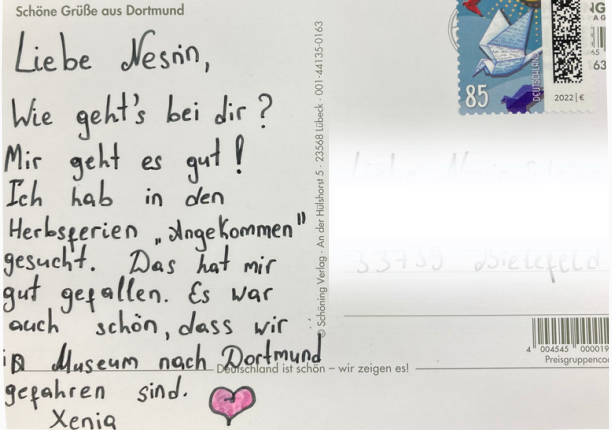 Schöne Grüße aus Dortmund
Liebe Nesrin,
Wie geht's bei dir?
Mir geht es gut!
Ich hab in den
Herbsferien „Angekommen"
gesucht. Das hat mir
gut gefallen. Es war
auch schön, dass wir
in Museum nach Dortmund
gefahren sind.
Xenia
Deutschland ist schön – wir zeigen es!
© Schöning Verlag · An der Hülshorst 5 · 23568 Lübeck · 001-44135-0163
85
DEUTSCHLAND
2022 | €
NG
AG
65
63
Liebe Nesrin
33739 Bielefeld
4 004545 000019
Preisgruppenco